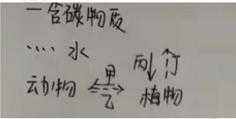 一含碳物质
.... 水
甲 丙 丁
动物 植物
乙